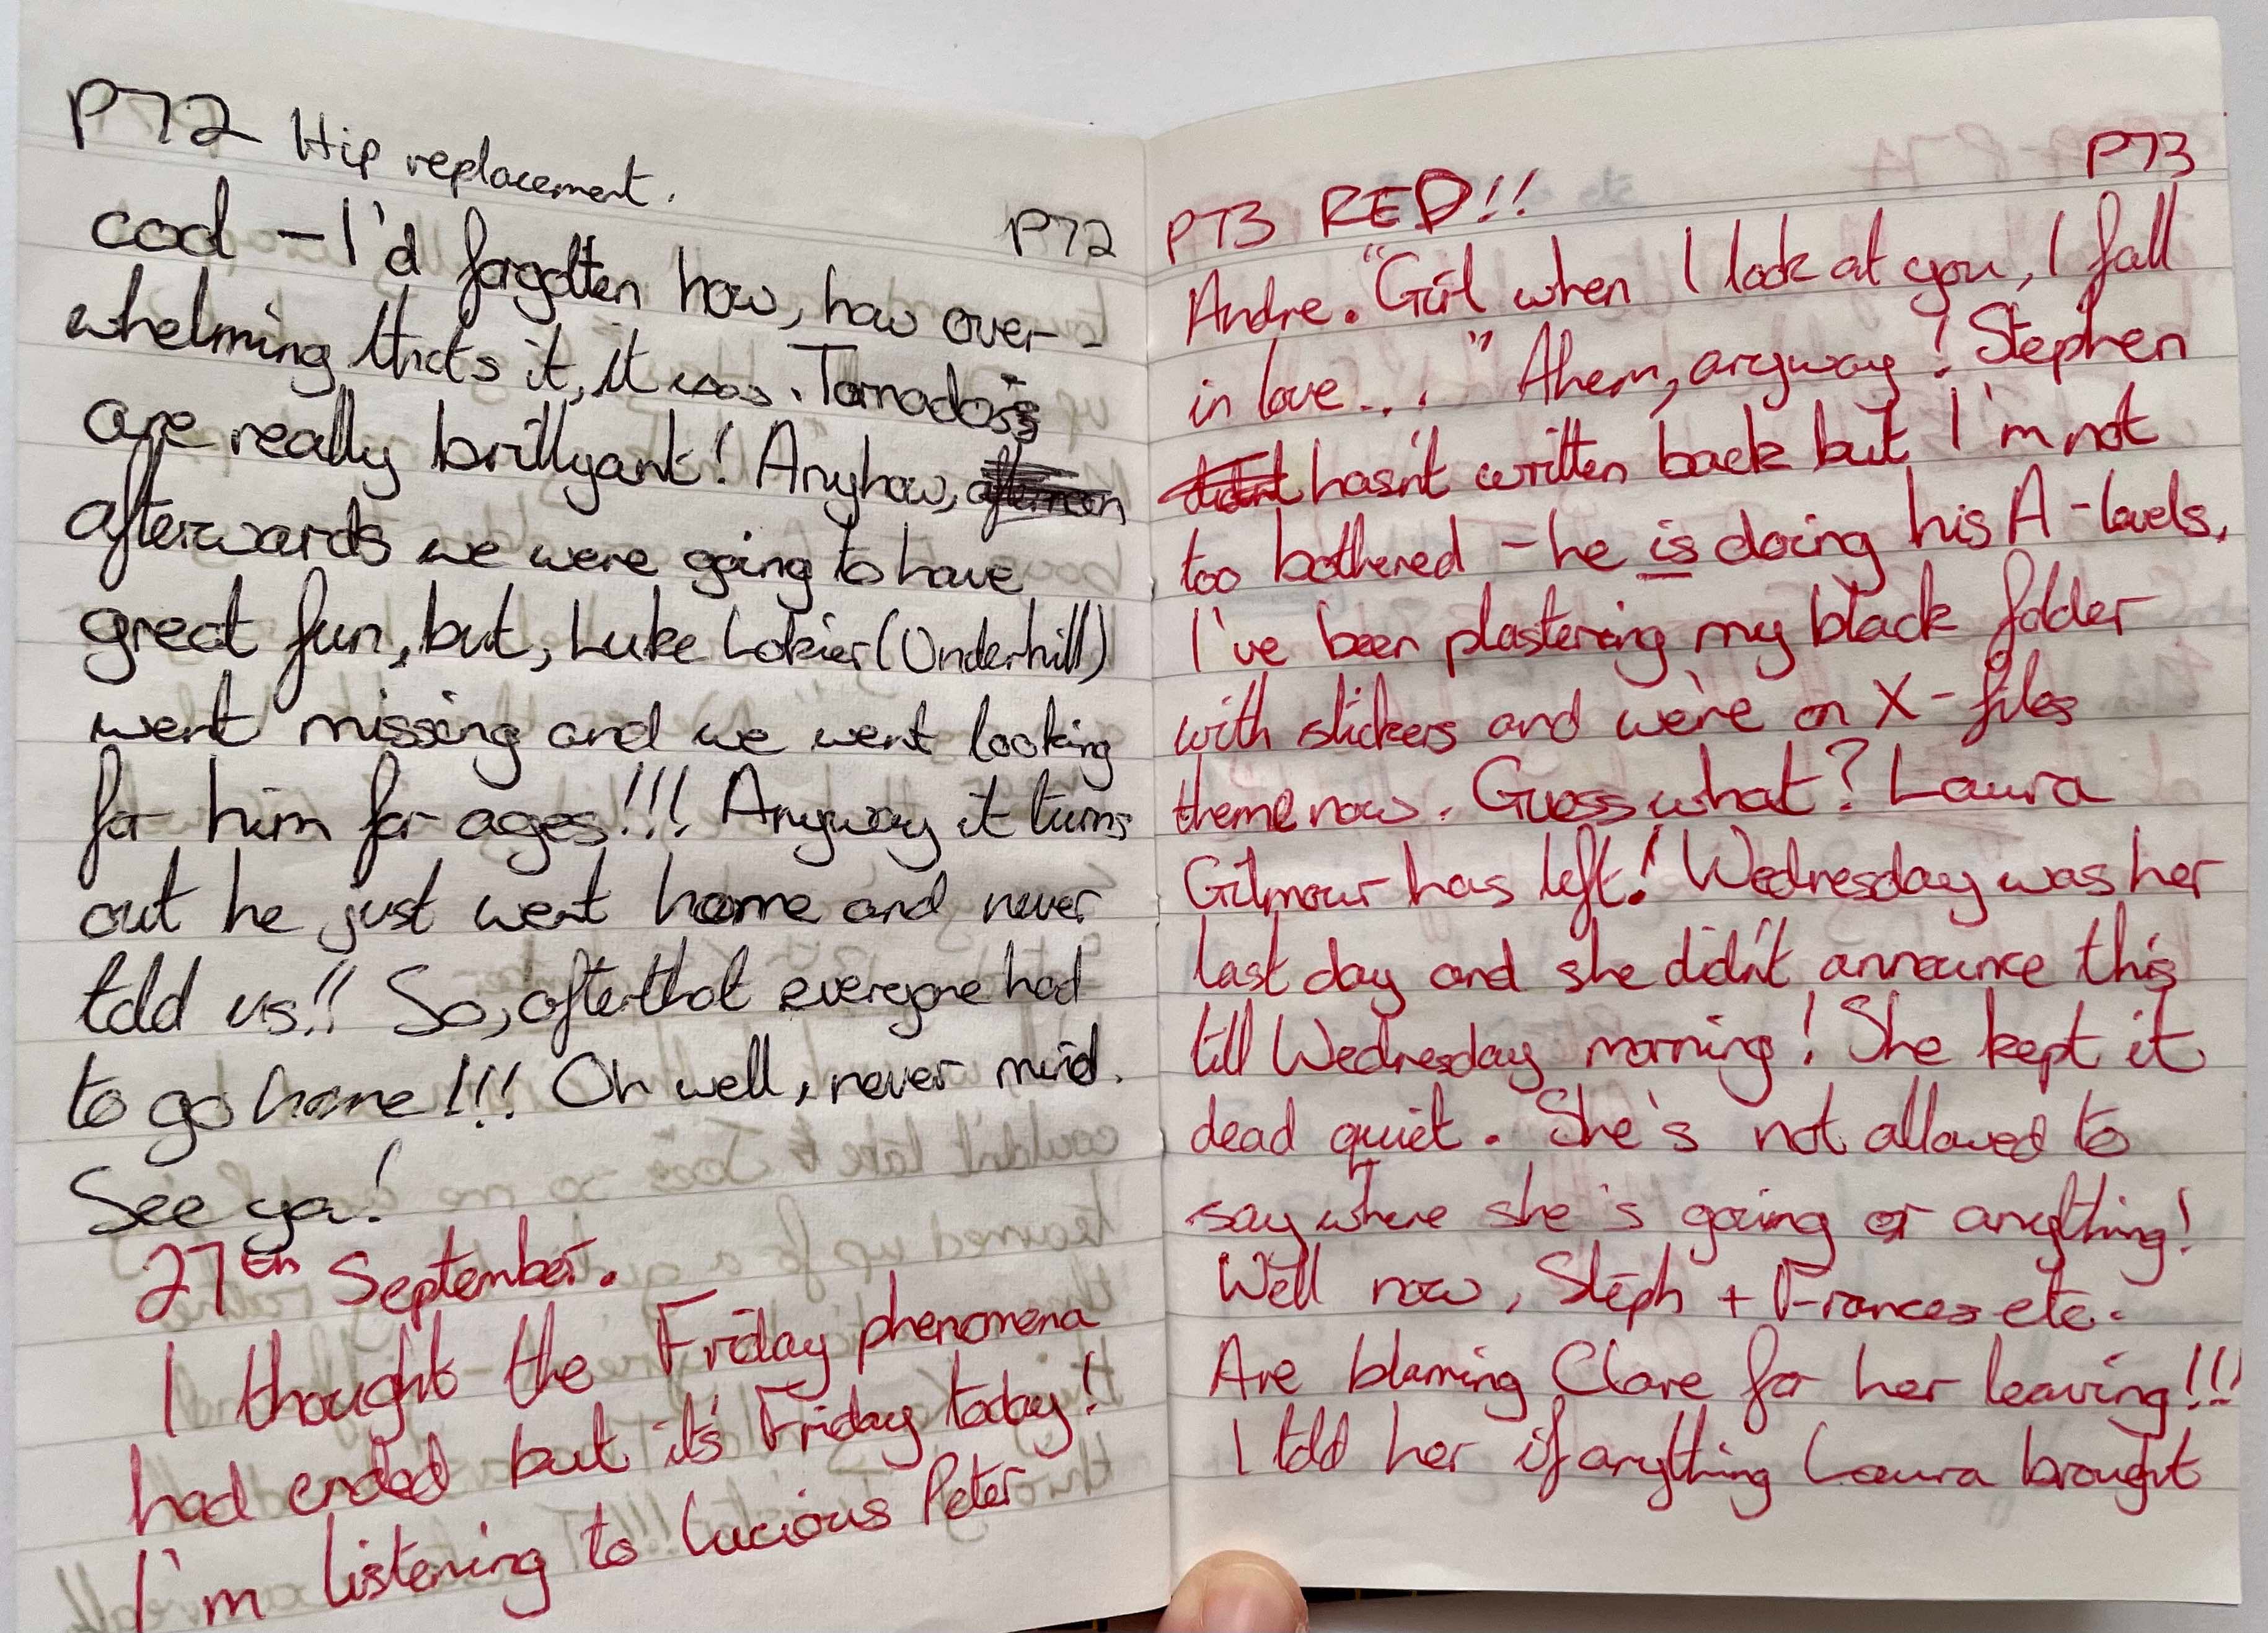 P72 Hip replacement.
P72
cool - I'd forgotten how, how over-
whelming thats it, it was. Tornados
are really brillyant! Anyhow, afternoon
afterwards we were going to have
great fun, but, Luke Lokier (Underhill)
went missing and we went looking
for him for ages!!! Anyway it turns
out he just went home and never
told us!! So, after that everyone had
to go home!!! Oh well, never mind.
See ya!
27th September.
I thought the Friday phenomena
had ended but it's Friday today!
I'm listening to Lucious Peter
P73
P73 RED!!
Andre. "Girl when I look at you, I fall
in love...." Ahem, anyway! Stephen
didnt hasn't written back but I'm not
too bothered - he is doing his A-levels.
I've been plastering my black folder
with stickers and we're on X-files
theme now. Guess what? Laura
Gilmour has left! Wednesday was her
last day and she didn't announce this
till Wednesday morning! She kept it
dead quiet. She's not allowed to
say where she's going or anything!
Well now, Steph + Frances etc.
Are blaming Clare for her leaving!!!
I told her if anything Laura brought